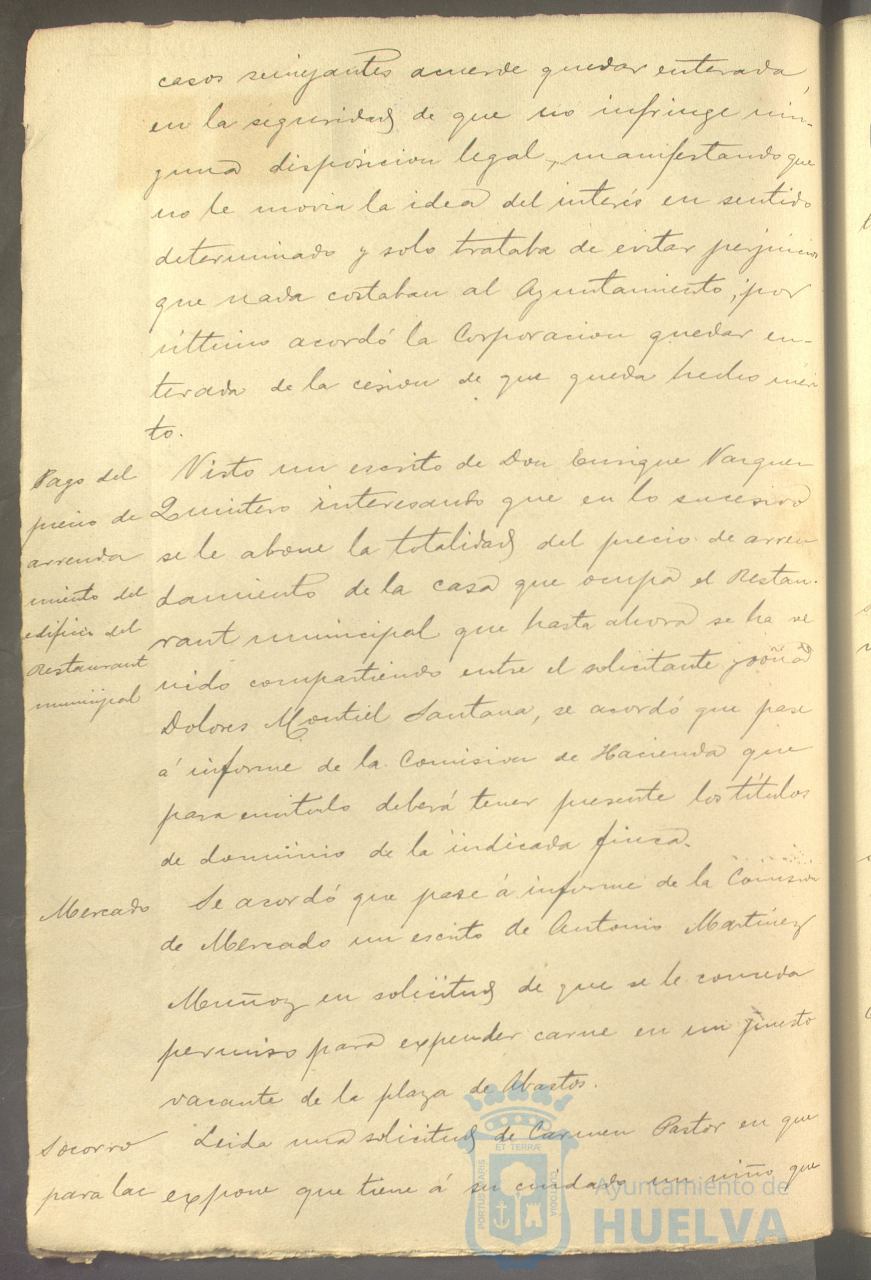 casos semejantes acuerde quedar enterada,
en la seguridad de que no infringe nin-
guna disposicion legal, manifestando que
no le movia la idea del interés en sentido
determinado y solo trataba de evitar perjuicios
que nada costaban al Ayuntamiento; por
último acordó la Corporacion quedar en-
terada de la cesion de que queda hecho méri-
to.
Pago del
precio de
arrenda
miento del
edificio del
Restaurant
municipal
Visto un escrito de Don Enrique Vazquez
Quintero interesando que en lo sucesivo
se le abone la totalidad del precio de arren
damiento de la casa que ocupa el Restau-
rant municipal que hasta ahora se ha ve
nido compartiendo entre el solicitante y doña
Dolores Montiel Santana, se acordó que pase
á informe de la Comision de Hacienda que
para emitirlo deberá tener presente los títulos
de dominio de la indicada finca.
Mercado
Se acordó que pase á informe de la Comision
de Mercado un escrito de Antonio Martínez
Muñoz en solicitud de que se le conceda
permiso para expender carne en un puesto
vacante de la plaza de Abastos.
Socorro
para lac
Leida una solicitud de Carmen Pastor en que
expone que tiene á su cuidado un niño que
PORTUS MARIS
ET TERRÆ
CUSTODIA
Ayuntamiento de
HUELVA